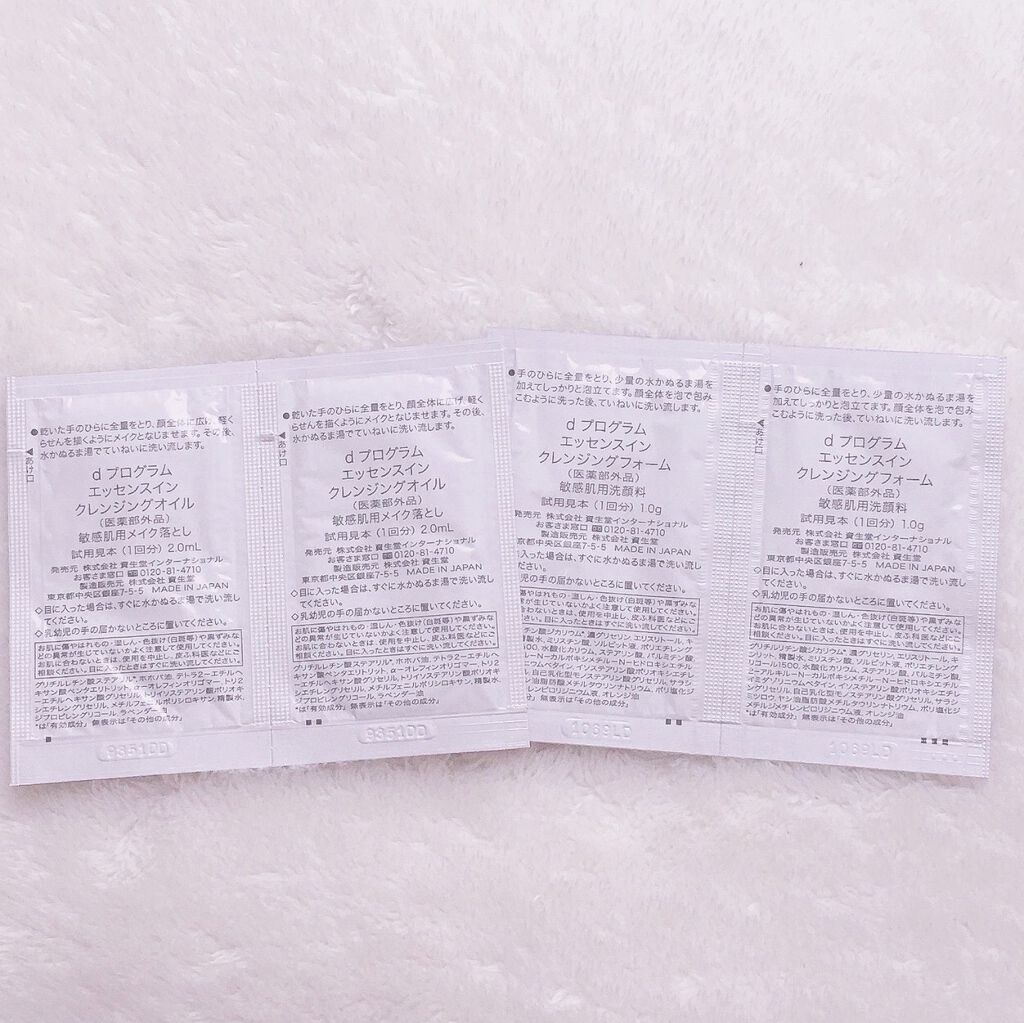 ●乾いた手のひらに全量をとり、顔全体に広げ、軽く
らせんを描くようにメイクとなじませます。その後、
水かぬるま湯でていねいに洗い流します。
◀あけ口
d プログラム
エッセンスイン
クレンジングオイル
(医薬部外品)
敏感肌用メイク落とし
試用見本(1回分) 2.0mL
発売元 株式会社 資生堂インターナショナル
お客さま窓口 0120-81-4710
製造販売元 株式会社 資生堂
東京都中央区銀座7-5-5 MADE IN JAPAN
◇目に入った場合は、すぐに水かぬるま湯で洗い流し
てください。
◇乳幼児の手の届かないところに置いてください。
お肌に傷やはれもの・湿しん・色抜け(白斑等)や黒ずみな
どの異常が生じていないかよく注意して使用してください。
お肌に合わないときは、使用を中止し、皮ふ科医などにご
相談ください。目に入ったときはすぐに洗い流してください。
グリチルレチン酸ステアリル*,ホホバ油,テトラ2-エチルヘ
キサン酸ペンタエリトリット,α-オレフィンオリゴマー,トリ2
-エチルヘキサン酸グリセリル,トリイソステアリン酸ポリオキ
シエチレングリセリル,メチルフェニルポリシロキサン,精製水,
ジプロピレングリコール,ラベンダー油
*は「有効成分」無表示は「その他の成分」
9851DD
●乾いた手のひらに全量をとり、顔全体に広げ、軽く
らせんを描くようにメイクとなじませます。その後、
水かぬるま湯でていねいに洗い流します。
◀あけ口
d プログラム
エッセンスイン
クレンジングオイル
(医薬部外品)
敏感肌用メイク落とし
試用見本(1回分) 2.0mL
発売元 株式会社 資生堂インターナショナル
お客さま窓口 0120-81-4710
製造販売元 株式会社 資生堂
東京都中央区銀座7-5-5 MADE IN JAPAN
◇目に入った場合は、すぐに水かぬるま湯で洗い流し
てください。
◇乳幼児の手の届かないところに置いてください。
お肌に傷やはれもの・湿しん・色抜け(白斑等)や黒ずみな
どの異常が生じていないかよく注意して使用してください。
お肌に合わないときは、使用を中止し、皮ふ科医などにご
相談ください。目に入ったときはすぐに洗い流してください。
グリチルレチン酸ステアリル*,ホホバ油,テトラ2-エチルヘ
キサン酸ペンタエリトリット,α-オレフィンオリゴマー,トリ2
-エチルヘキサン酸グリセリル,トリイソステアリン酸ポリオキ
シエチレングリセリル,メチルフェニルポリシロキサン,精製水,
ジプロピレングリコール,ラベンダー油
*は「有効成分」無表示は「その他の成分」
9851DD
●手のひらに全量をとり、少量の水かぬるま湯を
加えてしっかりと泡立てます。顔全体を泡で包み
こむように洗った後、ていねいに洗い流します。
d プログラム
エッセンスイン
クレンジングフォーム
(医薬部外品)
敏感肌用洗顔料
試用見本(1回分) 1.0g
発売元 株式会社 資生堂インターナショナル
お客さま窓口 0120-81-4710
製造販売元 株式会社 資生堂
京都中央区銀座7-5-5 MADE IN JAPAN
入った場合は、すぐに水かぬるま湯で洗い流し
ください。
児の手の届かないところに置いてください。
傷やはれもの・湿しん・色抜け(白斑等)や黒ずみな
常が生じていないかよく注意して使用してください。
合わないときは、使用を中止し、皮ふ科医などにご
ください。目に入ったときはすぐに洗い流してください。
チン酸ジカリウム*,濃グリセリン,エリスリトール,キ
製水,ミリスチン酸,ソルビット液,ポリエチレング
500,水酸化カリウム,ステアリン酸,パルミチン酸,
キルーN-カルボキシメチルーN-ヒドロキシエチル
ニウムベタイン,イソステアリン酸ポリオキシエチ
ル,自己乳化型モノステアリン酸グリセリル,サラシ
ン油脂肪酸メチルタウリンナトリウム,ポリ塩化ジ
レンピロリジニウム液,オレンジ油
分」無表示は「その他の成分」
1069LD
●手のひらに全量をとり、少量の水かぬるま湯を
加えてしっかりと泡立てます。顔全体を泡で包み
こむように洗った後、ていねいに洗い流します。
◀あけ口
d プログラム
エッセンスイン
クレンジングフォーム
(医薬部外品)
敏感肌用洗顔料
試用見本(1回分) 1.0g
発売元 株式会社 資生堂インターナショナル
お客さま窓口 0120-81-4710
製造販売元 株式会社 資生堂
東京都中央区銀座7-5-5 MADE IN JAPAN
◇目に入った場合は、すぐに水かぬるま湯で洗い流し
てください。
◇乳幼児の手の届かないところに置いてください。
お肌に傷やはれもの・湿しん・色抜け(白斑等)や黒ずみな
どの異常が生じていないかよく注意して使用してください。
お肌に合わないときは、使用を中止し、皮ふ科医などにご
相談ください。目に入ったときはすぐに洗い流してください。
グリチルリチン酸ジカリウム*,濃グリセリン,エリスリトール,キ
シリット,精製水,ミリスチン酸,ソルビット液,ポリエチレング
リコール1500,水酸化カリウム,ステアリン酸,パルミチン酸,
2-アルキルーN-カルボキシメチルーN-ヒドロキシエチル
イミダゾリニウムベタイン,イソステアリン酸ポリオキシエチ
レングリセリル,自己乳化型モノステアリン酸グリセリル,サラシ
ミツロウ,ヤシ油脂肪酸メチルタウリンナトリウム,ポリ塩化ジ
メチルジメチレンピロリジニウム液,オレンジ油
*は「有効成分」無表示は「その他の成分」
1069LD